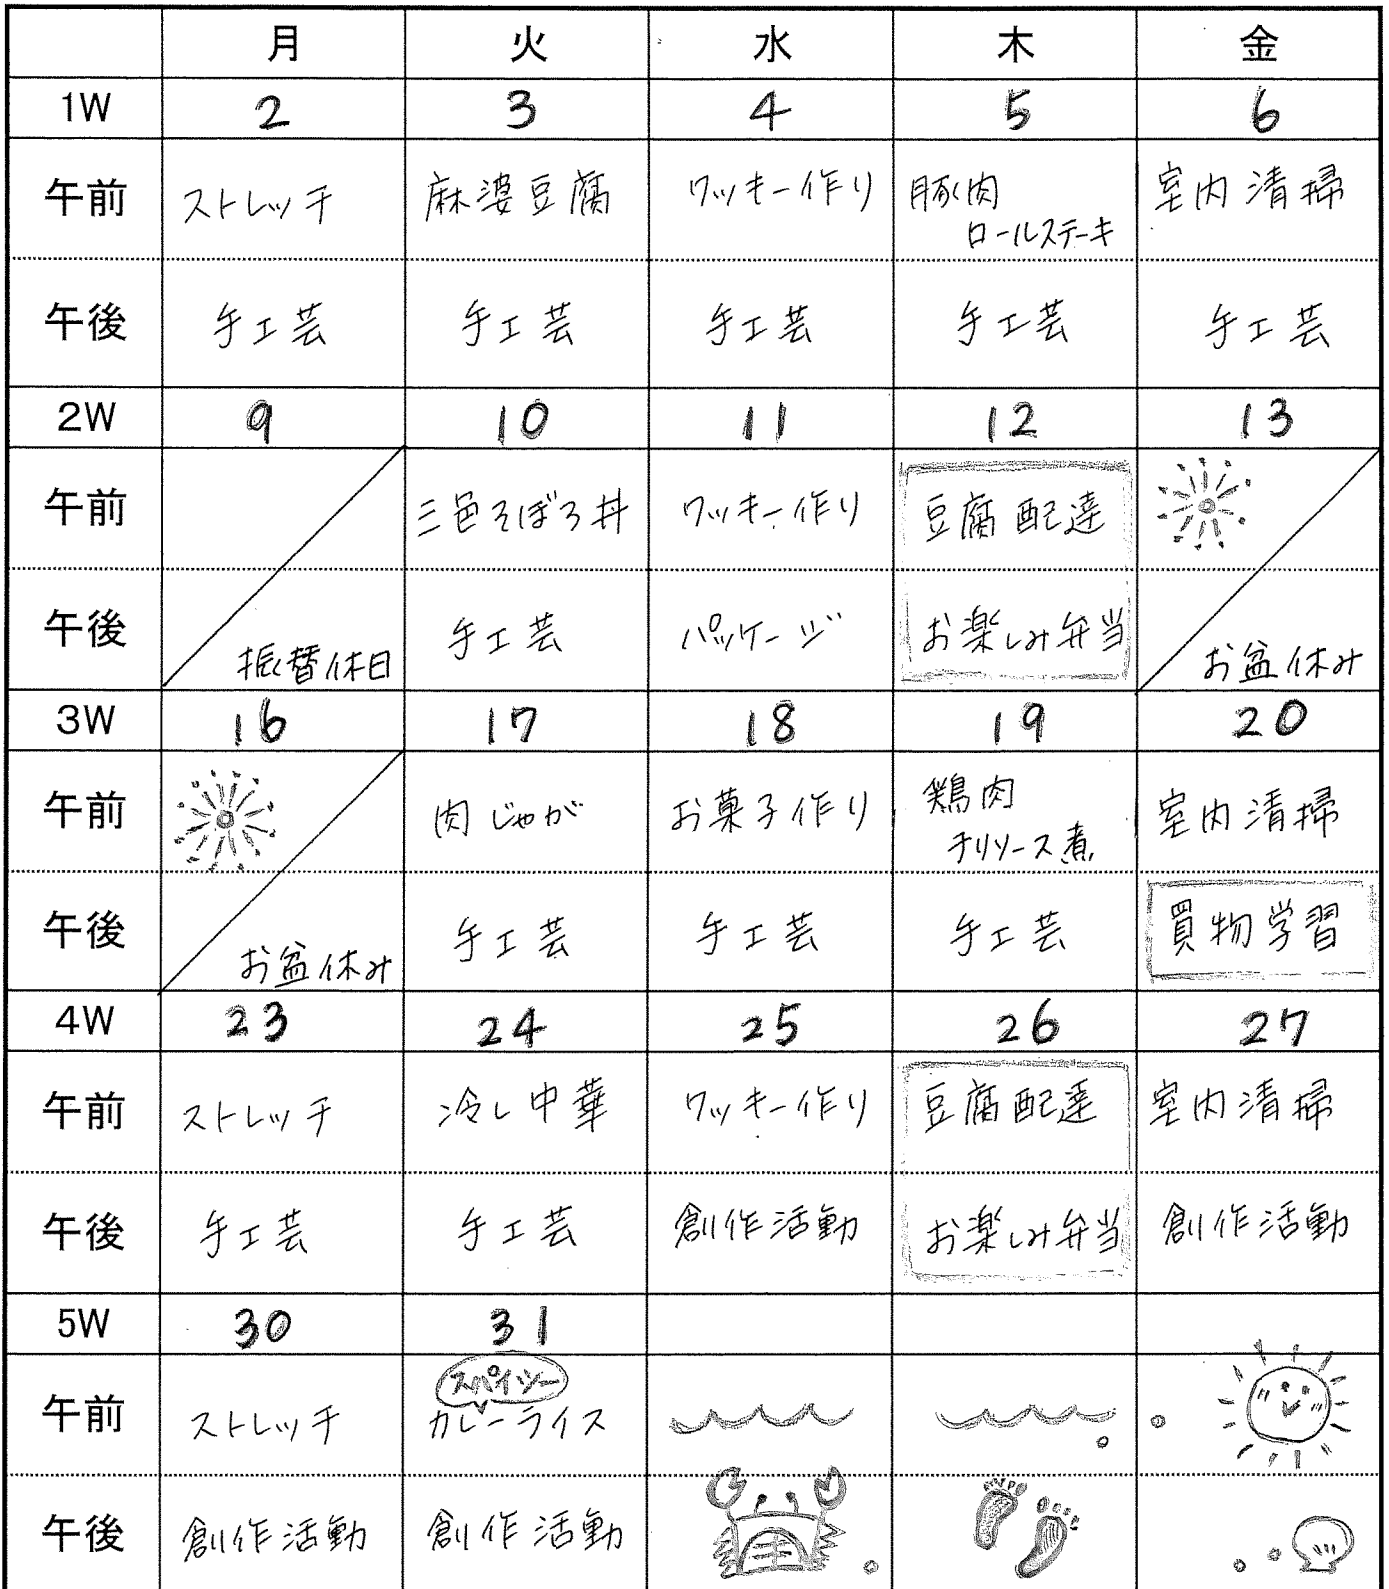 月 火 水 木 金
1W 2 3 4 5 6
午前 ストレッチ 麻婆豆腐 クッキー作り 豚肉
ロールステーキ 室内清掃
午後 手工芸 手工芸 手工芸 手工芸 手工芸
2W 9 10 11 12 13
午前 三色そぼろ丼 クッキー作り 豆腐配達
午後 振替休日 手工芸 パッケージ お楽しみ弁当 お盆休み
3W 16 17 18 19 20
午前 肉じゃが お菓子作り 鶏肉
チリソース煮 室内清掃
午後 お盆休み 手工芸 手工芸 手工芸 買物学習
4W 23 24 25 26 27
午前 ストレッチ 冷し中華 クッキー作り 豆腐配達 室内清掃
午後 手工芸 手工芸 創作活動 お楽しみ弁当 創作活動
5W 30 31
午前 ストレッチ スパイシー
カレーライス
午後 創作活動 創作活動